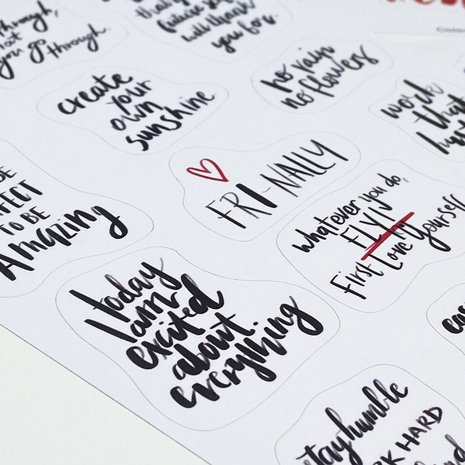 through,
you go through.
future self
will thank
you for.
create
your
own
sunshine
no rain
no flowers
work
that
FRI-NALLY
BE
TO BE
Amazing
whatever you do,
FLY
First Love Yourself
today
I am
excited
about
everything
stay humble
HARD